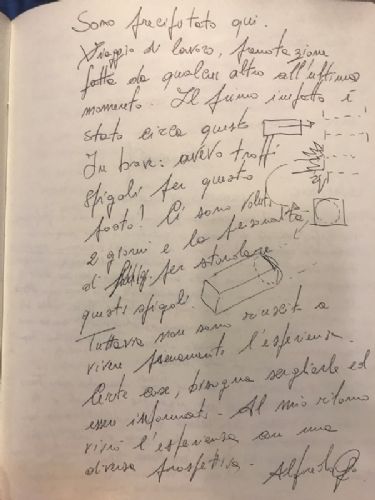 Sono precipitato qui.
Viaggio di lavoro, prenotazione
fatta da qualcun altro all'ultimo
momento. Il primo impatto è
stato circa questo
In breve: avevo troppi
spigoli per questo
posto! Ci sono voluti
2 giorni e la personalità
di per stondare
questi spigoli.
Tuttavia non sono riuscito a
vivere pienamente l'esperienza.
Certe cose, bisogna sceglierle ed
essere informati. Al mio ritorno
vivrò l'esperienza con una
diversa prospettiva. Alfredo